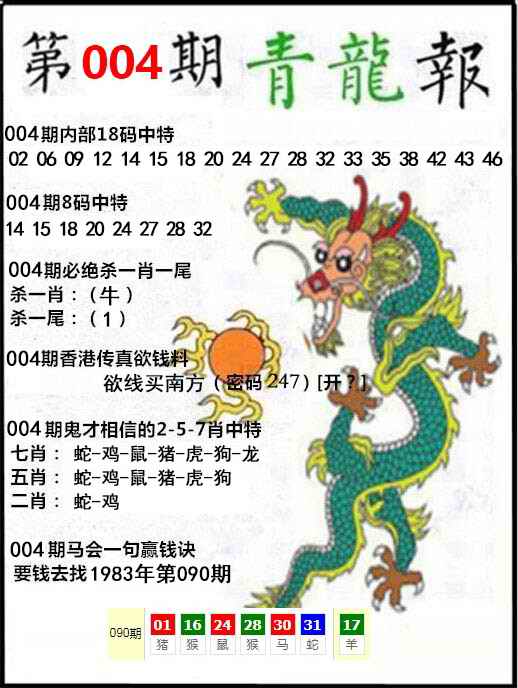 第004期青龍報
004期内部18码中特
02 06 09 12 14 15 18 20 24 27 28 32 33 35 38 42 43 46
004期8码中特
14 15 18 20 24 27 28 32
004期必绝杀一肖一尾
杀一肖：（牛）
杀一尾：（1）
004期香港传真欲钱料
欲线买南方（密码247）[开？]
004期鬼才相信的2-5-7肖中特
七肖： 蛇-鸡-鼠-猪-虎-狗-龙
五肖： 蛇-鸡-鼠-猪-虎-狗
二肖： 蛇-鸡
004期马会一句赢钱诀
要钱去找1983年第090期
090期 01 16 24 28 30 31 17
猪 猴 鼠 猴 马 蛇 羊